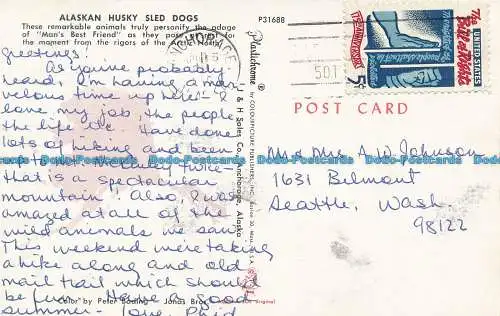 ALASKAN HUSKY SLED DOGS
These remarkable animals truly personify the adage
of "Man's Best Friend" as they pose
for the moment from the rigors of the North.
P31688
Greetings!
As you've probably
heard, I'm having a mar-
velous time up here - I
love my job, the people,
the life etc. Have done
lots of hiking and been
up to twice -
that is a spectacular
mountain! Also, I was
amazed at all of the
wild animals we saw.
This weekend we're taking
a hike along and old
mail trail which should
be fun. Have a good
summer - love,
Color by Peter - Jonas Bros.
Plastichrome ®
by COLOURPICTURE PUBLISHERS, INC., Boston 30, Mass., U.S.A.
J & H Sales Co., Anchorage, Alaska
Original
501
POST CARD
UNITED STATES
The Bill of Rights
175th ANNIVERSARY
5¢
Mr & Mrs. A. W. Johnson
1631 Belmont
Seattle, Wash.
98122
Dodo-Postcards.com